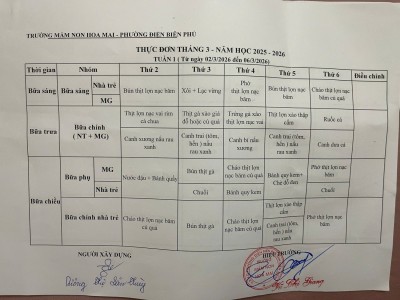 TRƯỜNG MẦM NON HOA MAI - PHƯỜNG ĐIỆN BIÊN PHỦ
THỰC ĐƠN THÁNG 3 - NĂM HỌC 2025 - 2026
TUẦN 1 ( Từ ngày 02/3/2026 đến 06/3/2026)
Thời gian Nhóm Thứ 2 Thứ 3 Thứ 4 Thứ 5 Thứ 6 Điều chỉnh
Bữa sáng Bữa sáng Nhà trẻ MG Bún thịt lợn nạc băm Xôi + Lạc vừng Phở thịt lợn nạc băm Bún thịt lợn nạc băm Cháo thịt lợn nạc băm củ quả
Bữa trưa Bữa chính ( NT + MG) Thịt lợn nạc vai rim cà chua Thịt gà xào giá đỗ hoặc củ quả Trứng gà xào thịt lợn nạc vai Thịt lợn nạc xào thập cẩm Ruốc cá
Canh xương nấu rau xanh Canh trai (tôm, hến ) nấu rau xanh Canh bí nấu xương Canh trai (tôm, hến ) nấu rau xanh Canh dưa cá
Bữa chiều Bữa phụ MG Nước dâu + Bánh quẩy Bún thịt gà Cháo thịt lợn nạc băm củ quả Bánh quy kem+ Chè đỗ đen Phở thịt lợn nạc băm
Nhà trẻ Chuối Bánh quy kem Chuối
Bữa chính nhà trẻ Cháo thịt lợn nạc băm củ quả Bún thịt gà Cháo thịt lợn nạc băm củ quả Thịt lợn nạc xào thập cẩm Phở thịt lợn nạc băm
Canh trai(tôm, hến ) nấu rau xanh
NGƯỜI XÂY DỰNG HIỆU TRƯỞNG